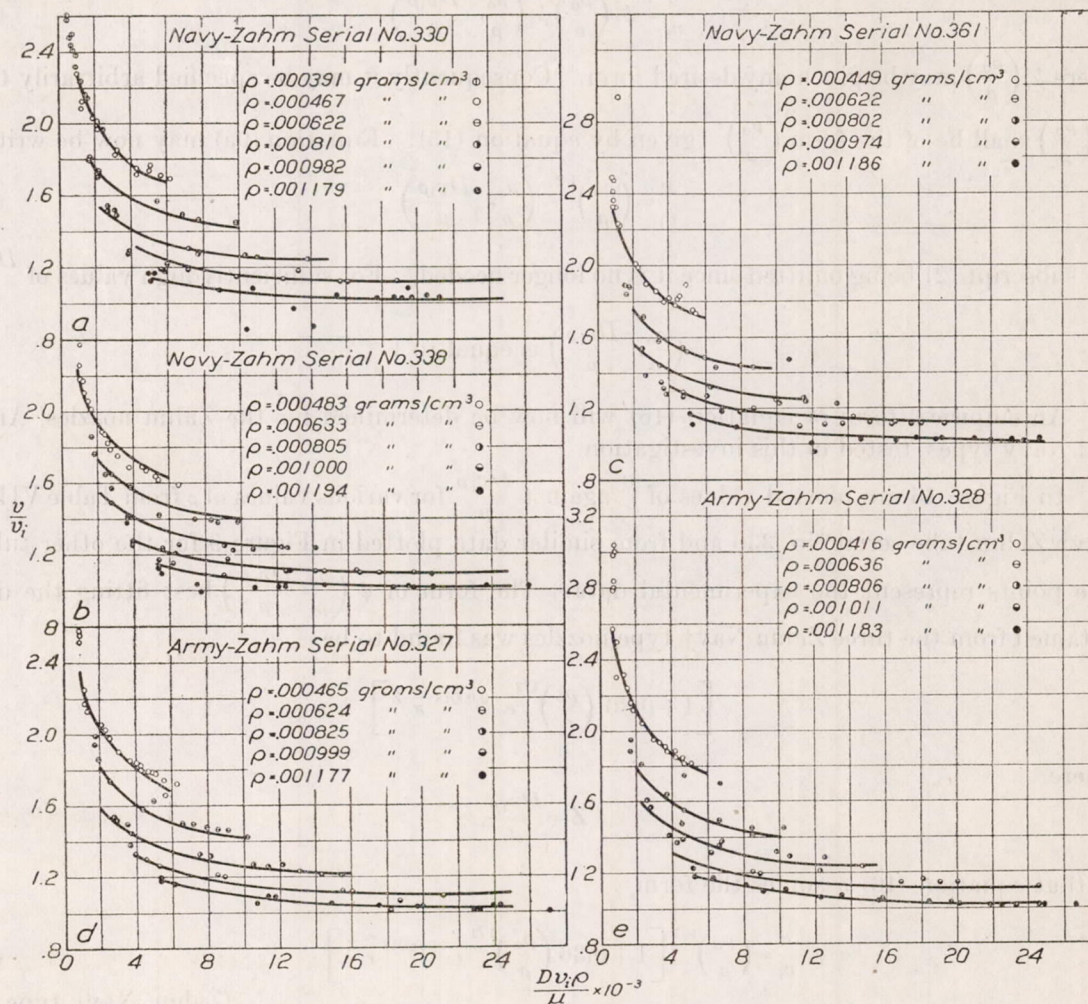 Navy-Zahm Serial No.330
ρ=.000391 grams/cm³
ρ=.000467 " "
ρ=.000622 " "
ρ=.000810 " "
ρ=.000982 " "
ρ=.001179 " "
2.4
2.0
1.6
1.2
.8
a
Navy-Zahm Serial No.338
ρ=.000483 grams/cm³
ρ=.000633 " "
ρ=.000805 " "
ρ=.001000 " "
ρ=.001194 " "
2.0
1.6
v/vᵢ
1.2
.8
b
Army-Zahm Serial No.327
ρ=.000465 grams/cm³
ρ=.000624 " "
ρ=.000825 " "
ρ=.000999 " "
ρ=.001177 " "
2.4
2.0
1.6
1.2
.8
d
0 4 8 12 16 20 24
Navy-Zahm Serial No.361
ρ=.000449 grams/cm³
ρ=.000622 " "
ρ=.000802 " "
ρ=.000974 " "
ρ=.001186 " "
2.8
2.4
2.0
1.6
1.2
.8
c
Army-Zahm Serial No.328
ρ=.000416 grams/cm³
ρ=.000636 " "
ρ=.000806 " "
ρ=.001011 " "
ρ=.001183 " "
3.2
2.8
2.4
2.0
1.6
1.2
.8
e
0 4 8 12 16 20 24
Dvᵢρ/μ ×10⁻³